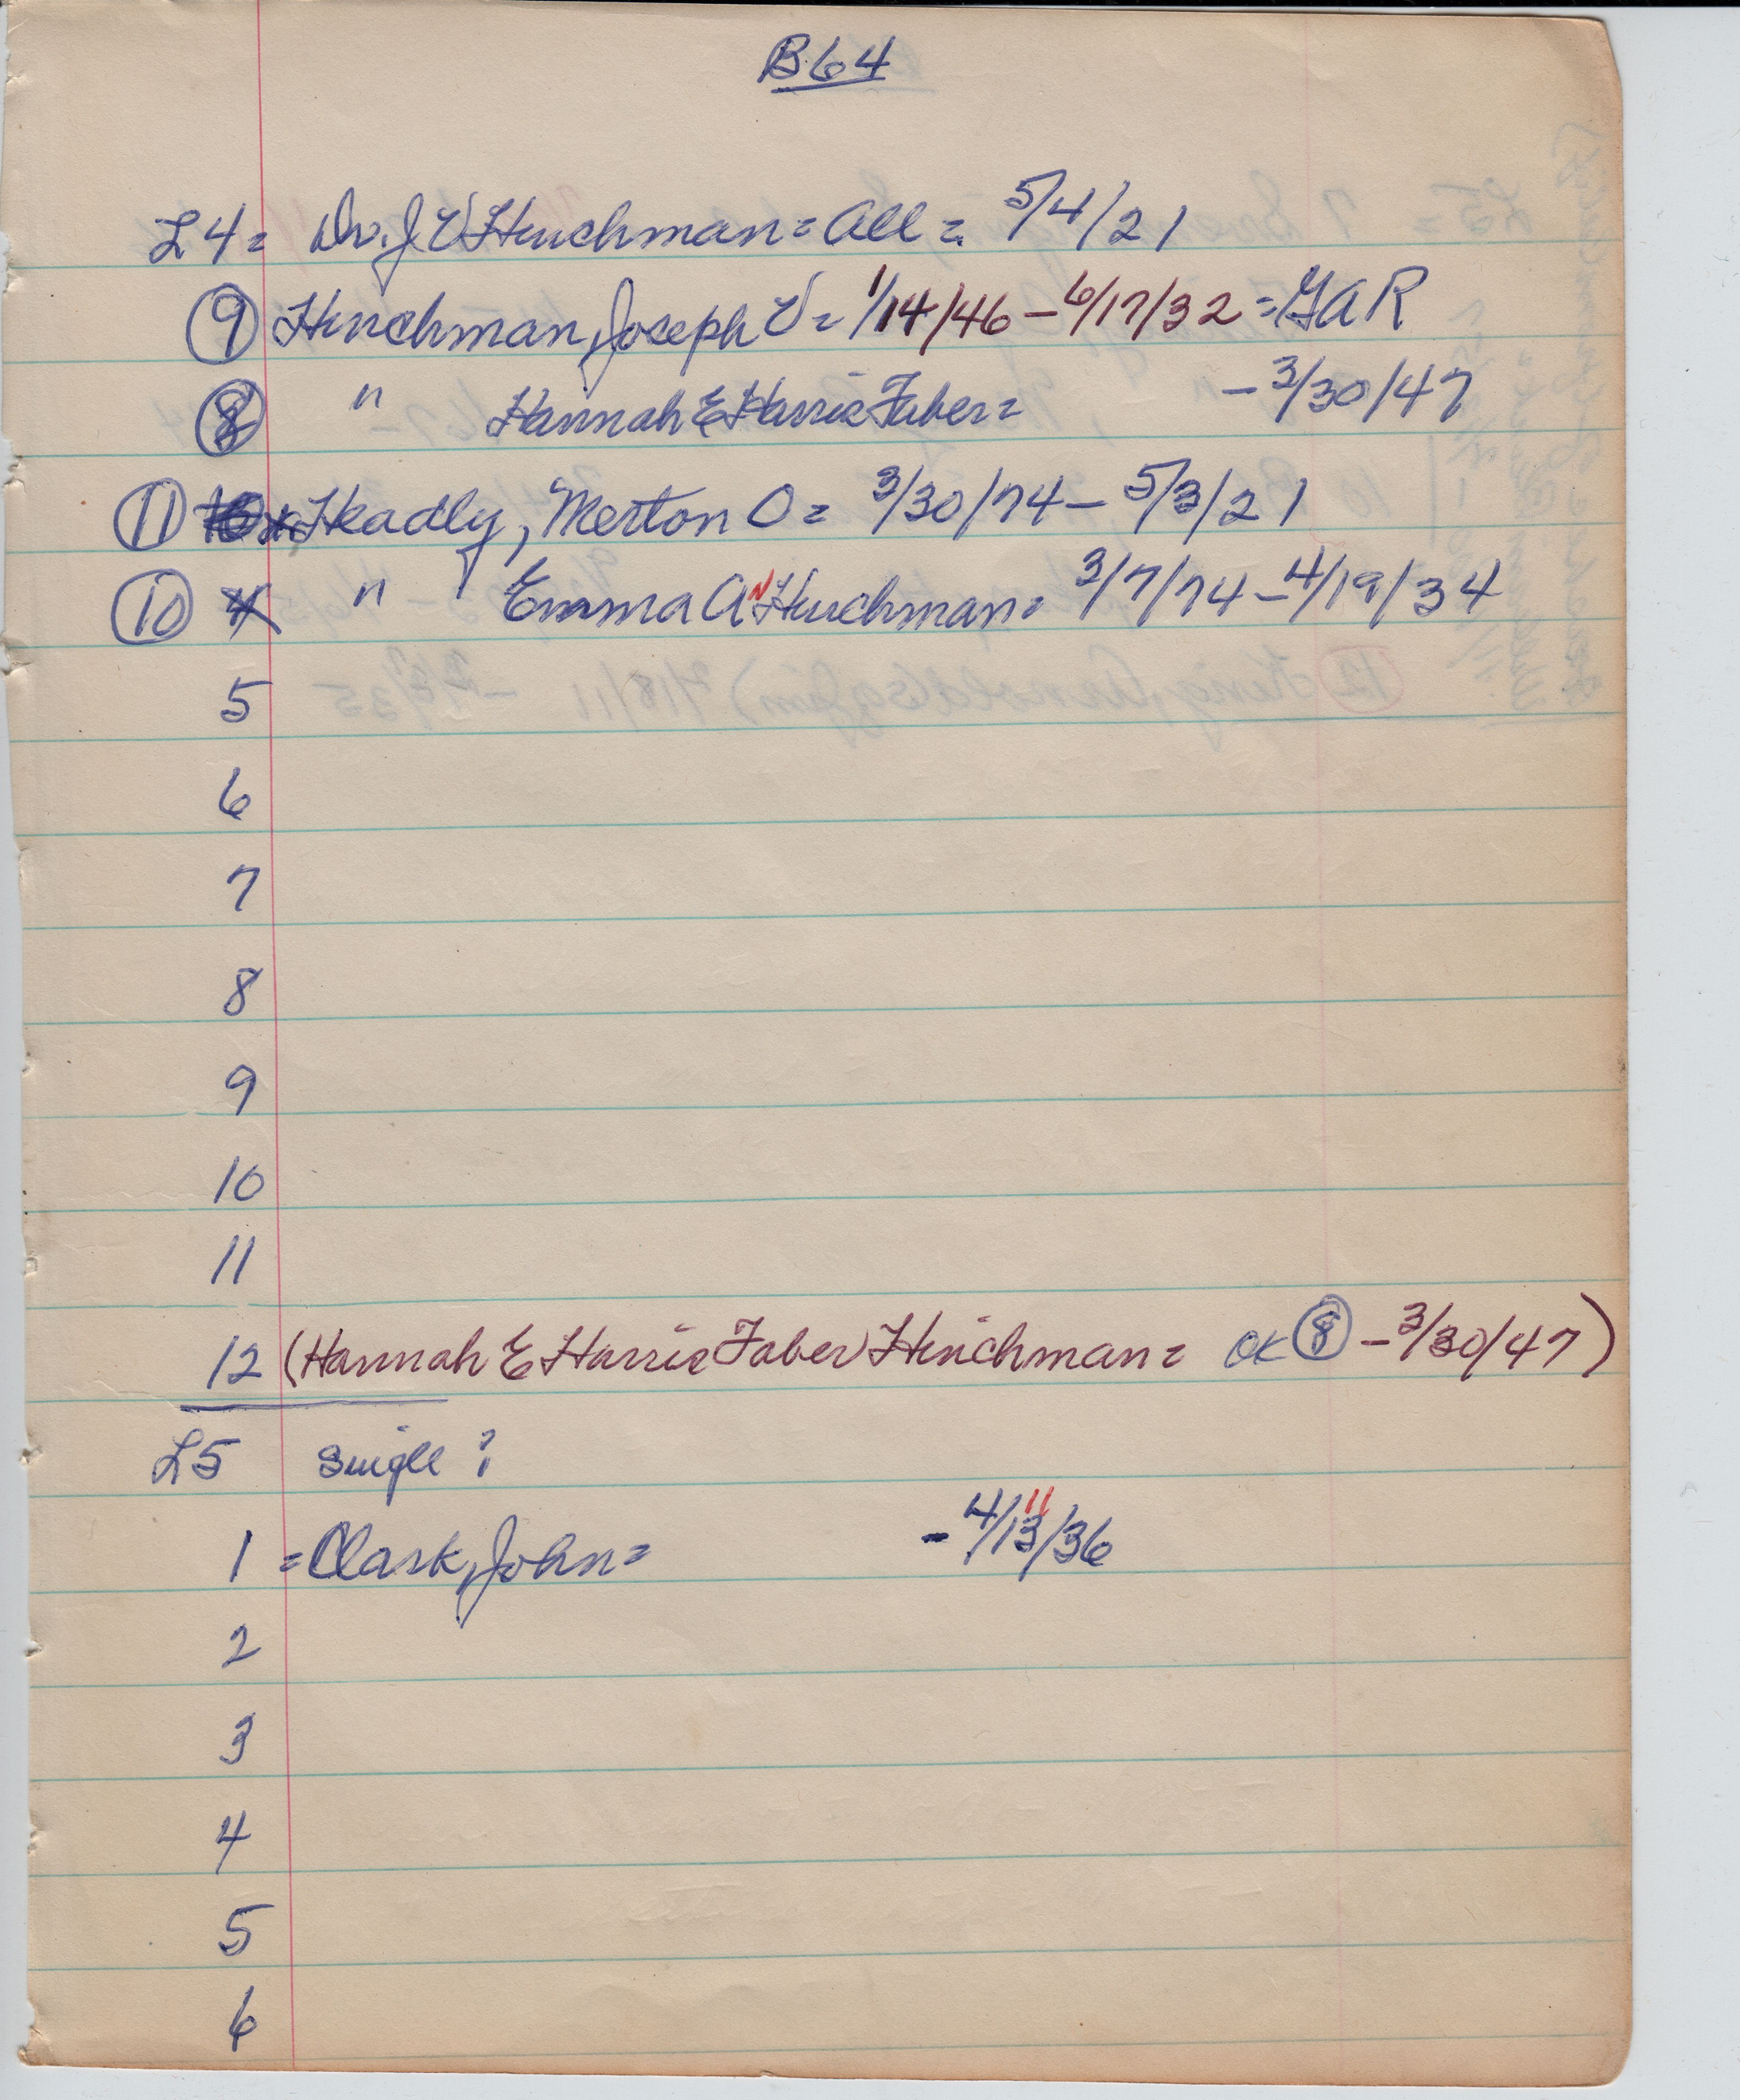 B64
L4 = Dr. J V Hinchman = All = 5/4/21
9 Hinchman, Joseph V = 1/14/46 - 6/17/32 = GAR
8 " Hannah E Harris Faber = - 3/30/47
11 Headly, Merton O = 3/30/74 - 5/3/21
10 " Emma A Hinchman = 3/7/74 - 4/19/34
5
6
7
8
9
10
11
12 (Hannah E Harris Faber Hinchman = OK 8 - 3/30/47)
L5 single?
1 = Clark, John = - 4/13/36 11
2
3
4
5
6